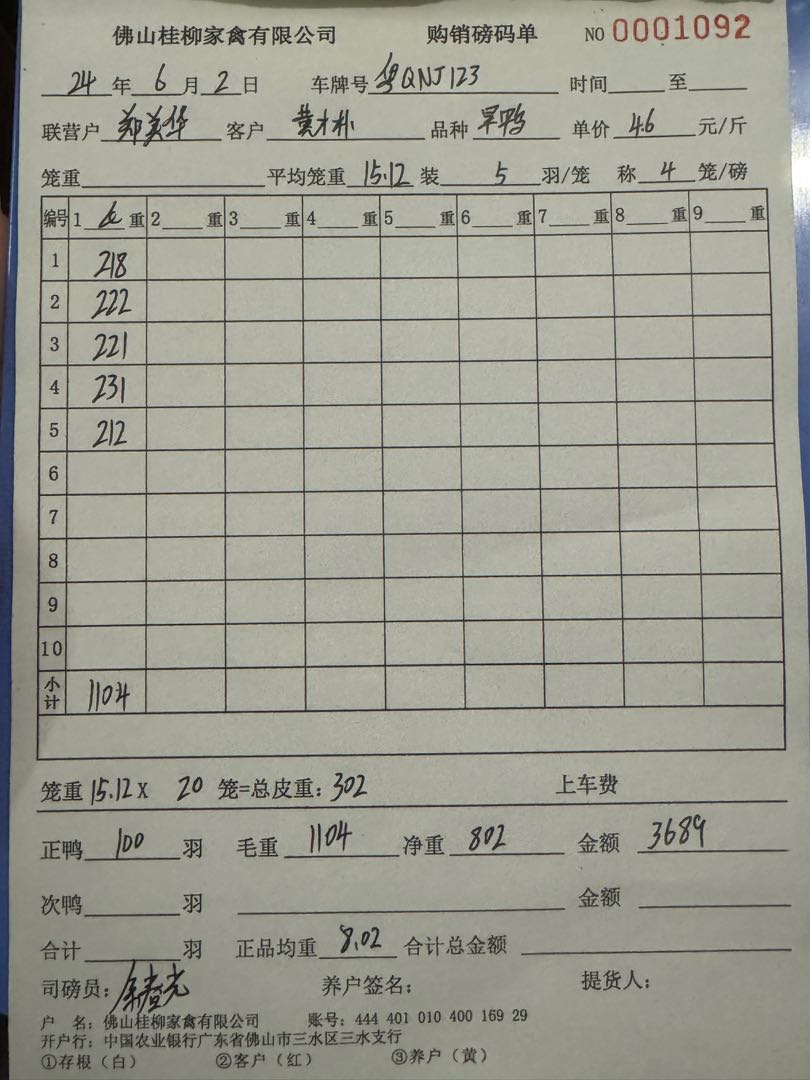 佛山桂柳家禽有限公司 购销磅码单 NO 0001092
24 年 6 月 2 日 车牌号 粤QNJ123 时间 至
联营户 郑美华 客户 黄才朴 品种 旱鸭 单价 4.6 元/斤
笼重 平均笼重 15.12 装 5 羽/笼 称 4 笼/磅
编号 1 重 2 重 3 重 4 重 5 重 6 重 7 重 8 重 9 重
1 218
2 222
3 221
4 231
5 212
6
7
8
9
10
小计 1104
笼重 15.12 X 20 笼=总皮重: 302 上车费
正鸭 100 羽 毛重 1104 净重 802 金额 3689
次鸭 羽 金额
合计 羽 正品均重 8.02 合计总金额
司磅员: 养户签名: 提货人:
户 名: 佛山桂柳家禽有限公司 账号: 444 401 010 400 169 29
开户行: 中国农业银行广东省佛山市三水区三水支行
①存根(白) ②客户(红) ③养户(黄)